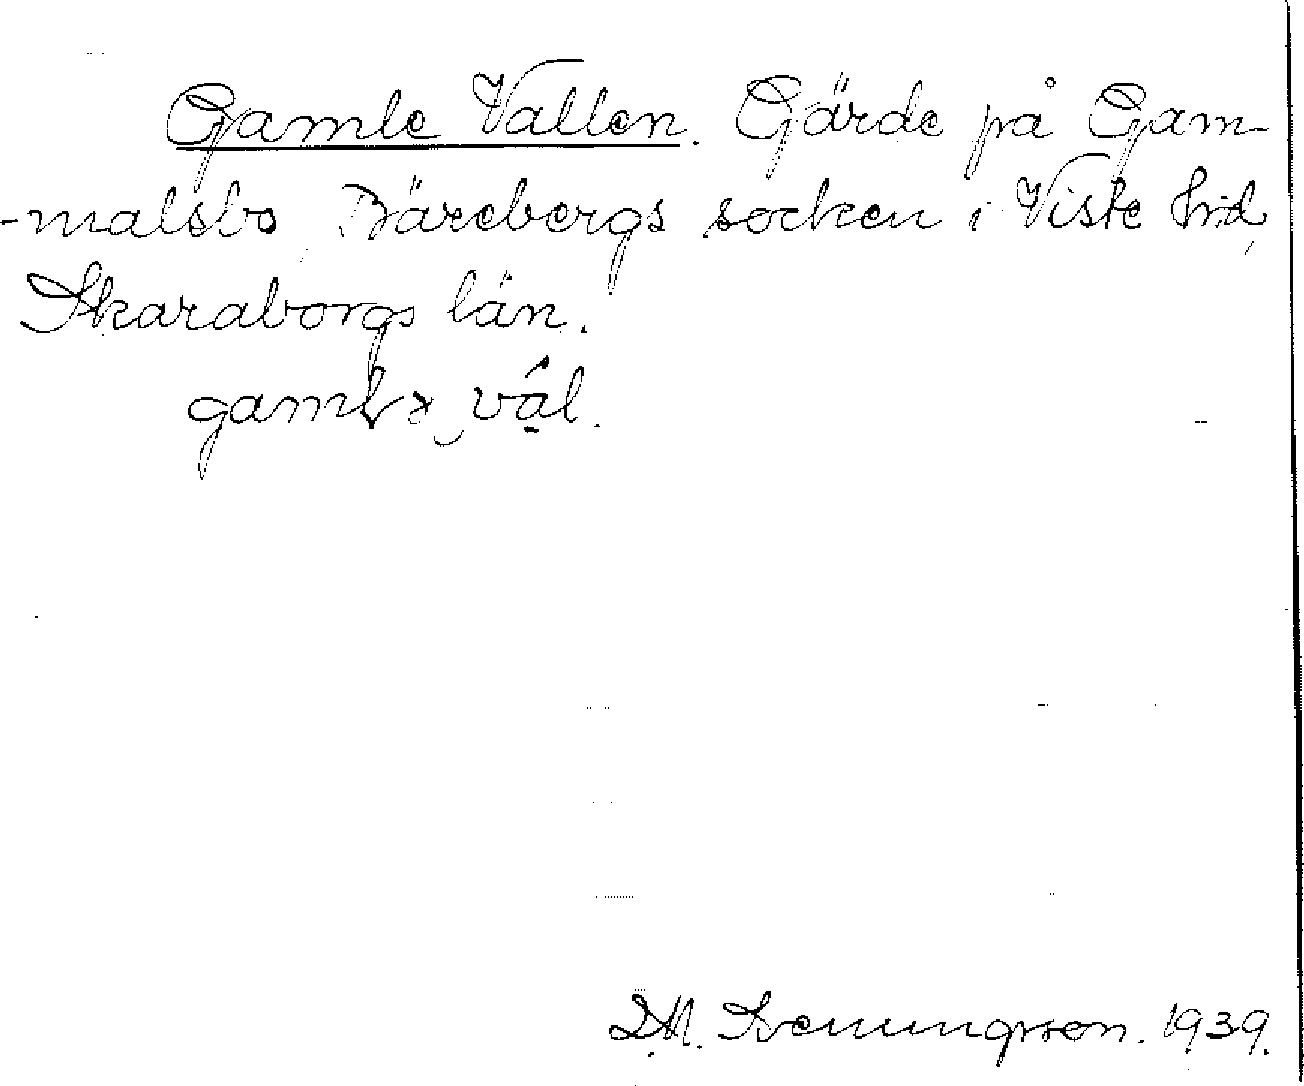 Gamle Vallen. Gärde på Gam-
-malsbo, Bärebergs socken i Viste hd,
Skaraborgs län.
vâl.
D.M. Svenungsson. 1939.